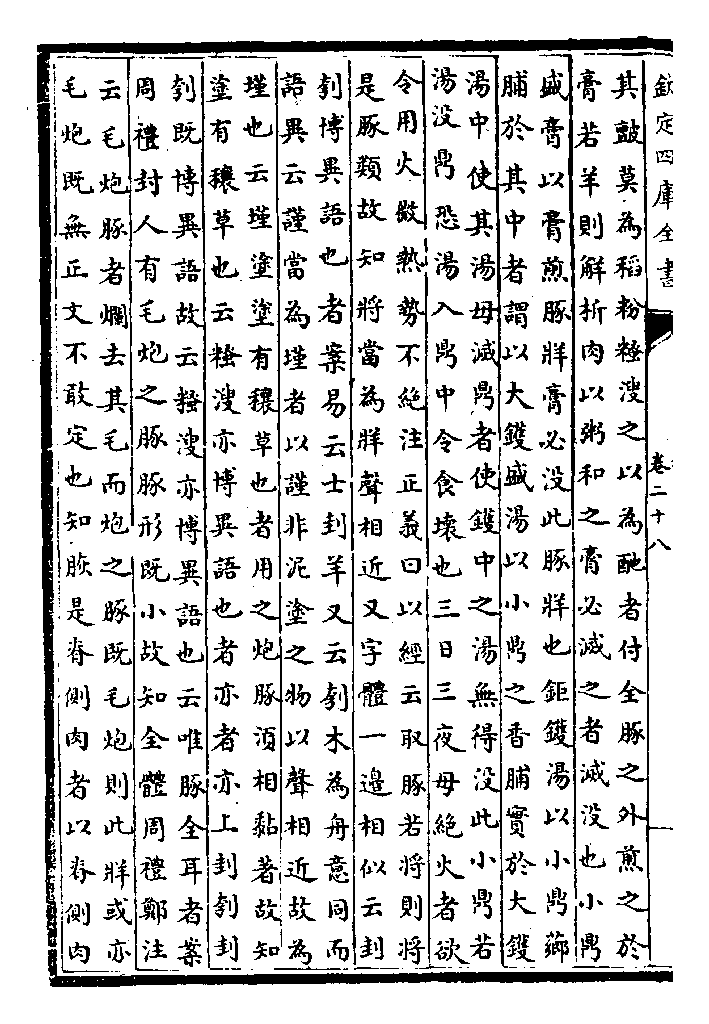 欽定四庫全書
卷二十八
其皽莫為稻粉糔溲之以為酏者付全豚之外煎之於
膏若羊則解析肉以粥和之膏必滅之者滅沒也小鼎
盛膏以膏煎豚牂膏必没此豚牂也鉅鑊湯以小鼎薌
脯於其中者謂以大鑊盛湯以小鼎之香脯實於大鑊
湯中使其湯毋滅鼎者使鑊中之湯無得没此小鼎若
湯没鼎恐湯入鼎中令食壊也三日三夜毋絶火者欲
令用火微熱勢不絶注正義曰以經云取豚若將則將
是豚類故知將當為牂聲相近又字體一邉相似云刲
刳博異語也者案易云士刲羊又云刳木為舟意同而
語異云謹當為墐者以謹非泥塗之物以聲相近故為
墐也云墐塗塗有穰草也者用之炮豚須相黏著故知
塗有穰草也云糔溲亦博異語也者亦者亦上刲刳刲
刳既博異語故云糔溲亦博異語也云唯豚全耳者案
周禮封人有毛炮之豚豚形既小故知全體周禮鄭注
云毛炮豚者爓去其毛而炮之豚既毛炮則此牂或亦
毛炮既無正文不敢定也知脄是脊側肉者以脊側肉